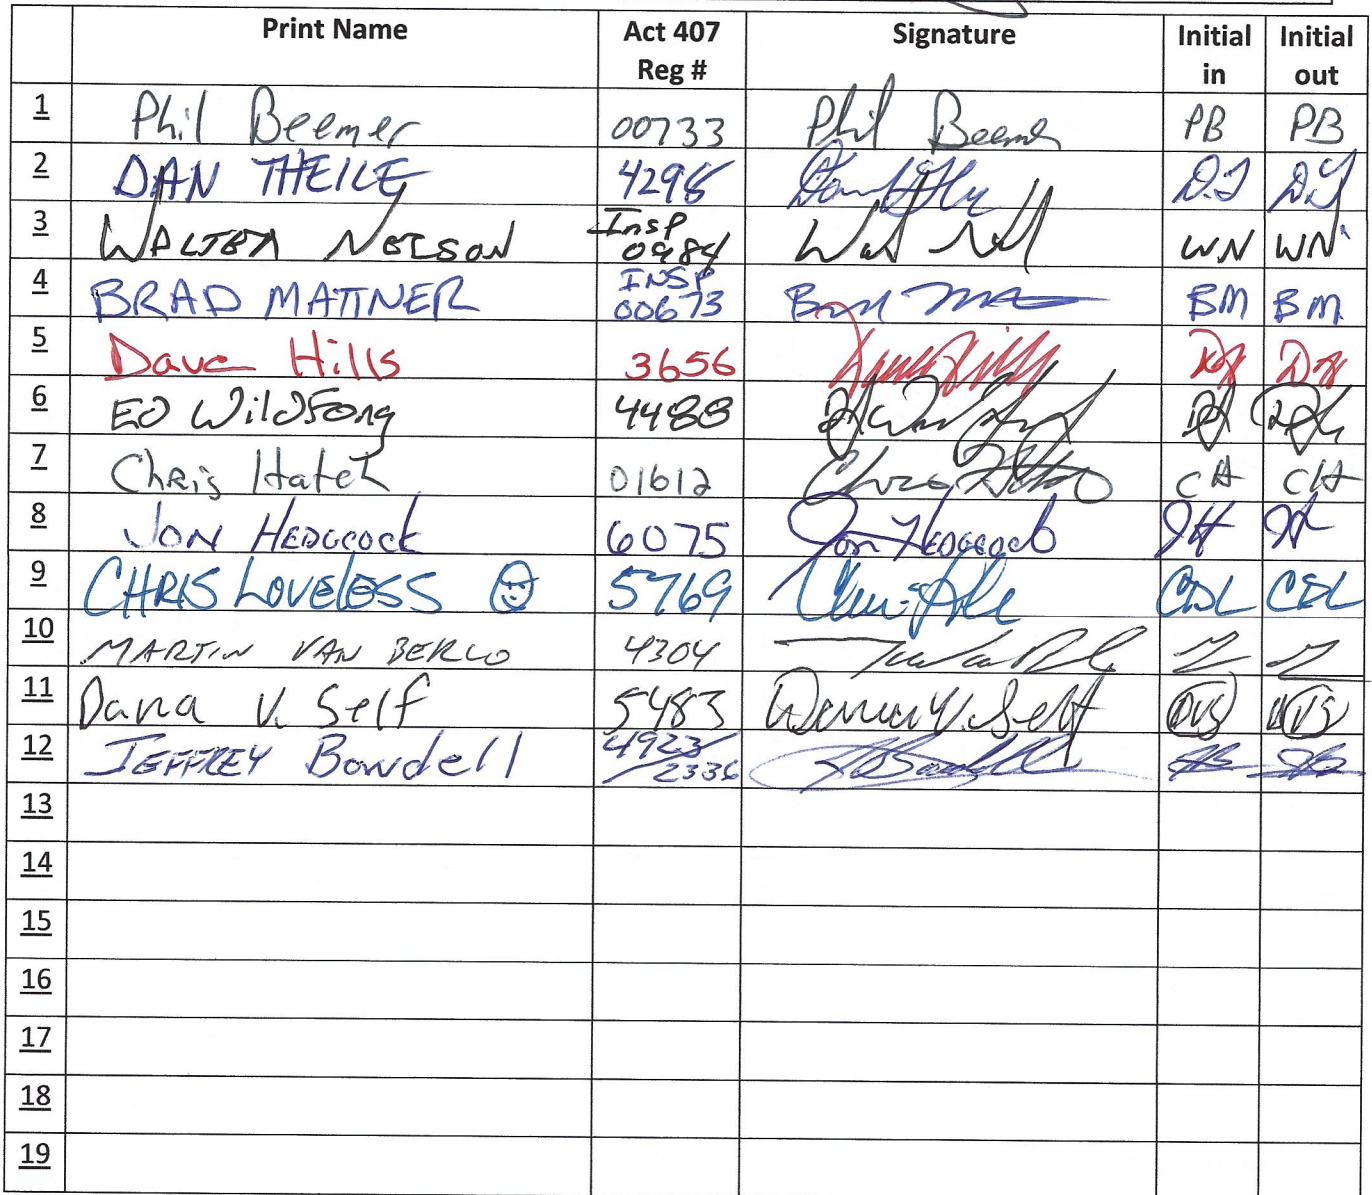 Print Name Act 407 Reg # Signature Initial in Initial out
1 Phil Beemer 00733 Phil Beemer PB PB
2 DAN THEILE 4298 D.T D.T
3 WALTER NELSON Insp 0984 WN WN
4 BRAD MATTNER INSP 00673 BM BM
5 Dave Hills 3656 Dave Hills DH DH
6 ED WildFong 4488
7 Chris Hatch 01612 CH CH
8 JON HEDGCOCK 6075 Jon Hedgcock JH JH
9 CHRIS LOVELESS ☺ 5769 CDL CDL
10 MARTIN VAN BERLO 4304
11 Dana V. Self 5483 Dana V. Self DVS DVS
12 JEFFREY Bowdell 4923/2336 JB JB
13
14
15
16
17
18
19